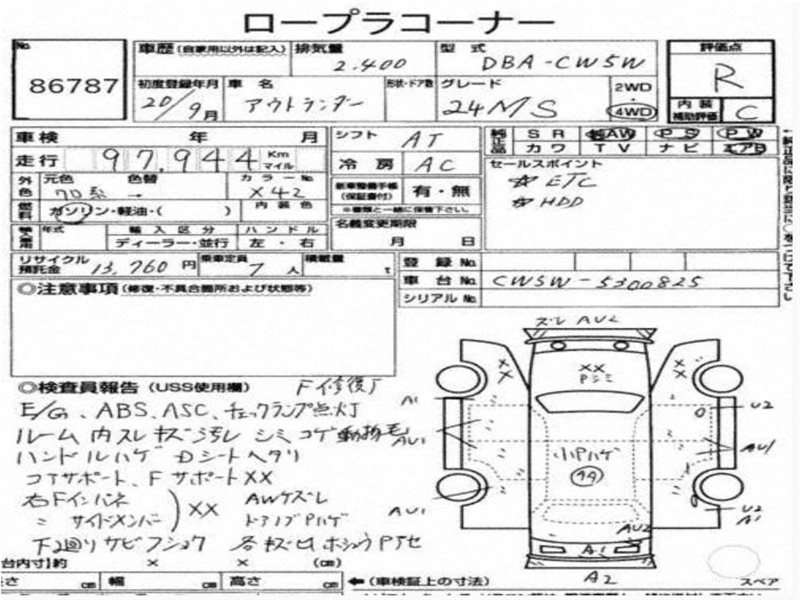 ロープラコーナー
No. 86787
車歴 (自家用以外は記入) 排気量 2.400 型式 DBA-CW5W 評価点 R
初度登録年月 20/9月 車名 アウトランダー 形状・ドア数 グレード 24MS 2WD・4WD 内装補助評価 C
車検 年 月 シフト AT 純正品 SR AW PS PW
走行 97,944 Km マイル 冷房 AC カワ TV ナビ エアB
外色 元色 色替 カラーNo. X42 新車整備手帳(保証書付) 有・無 セールスポイント
クロ系 → ☆ ETC
燃料 ガソリン・軽油・( ) 内装色 ※書類と一緒に保管下さい。 ☆ HDD
輸入車 年式 輸入区分 ハンドル 名義変更期限
ディーラー・並行 左・右 月 日
リサイクル預託金 13,760円 乗車定員 7人 積載量 t 登録No.
車台No. CW5W-5300825
シリアルNo.
◎注意事項 (修復・不具合箇所および状態等)
ズレ AU2
XX
Pシミ
◎検査員報告 (USS使用欄) F修復ア
E/G、ABS、ASC、チェックランプ点灯 A1
ルーム内スレキズ汚レ シミ コゲ 動物毛 AU1
ハンドルハゲ Dシートヘタリ
コアサポート、Fサポート XX
右Fインパネ XX AWケズレ
〃 サイドメンバー ドアノブPハゲ
下廻りサビフショク 各キズ凹 ホシュウPゼセ
U2
AU1
小Pハゲ
44
AU1
U2
A1
AU2
A1
A2
台内寸】約 × × (cm)
長さ cm 幅 cm 高さ cm ←(車検証上の寸法) スペア